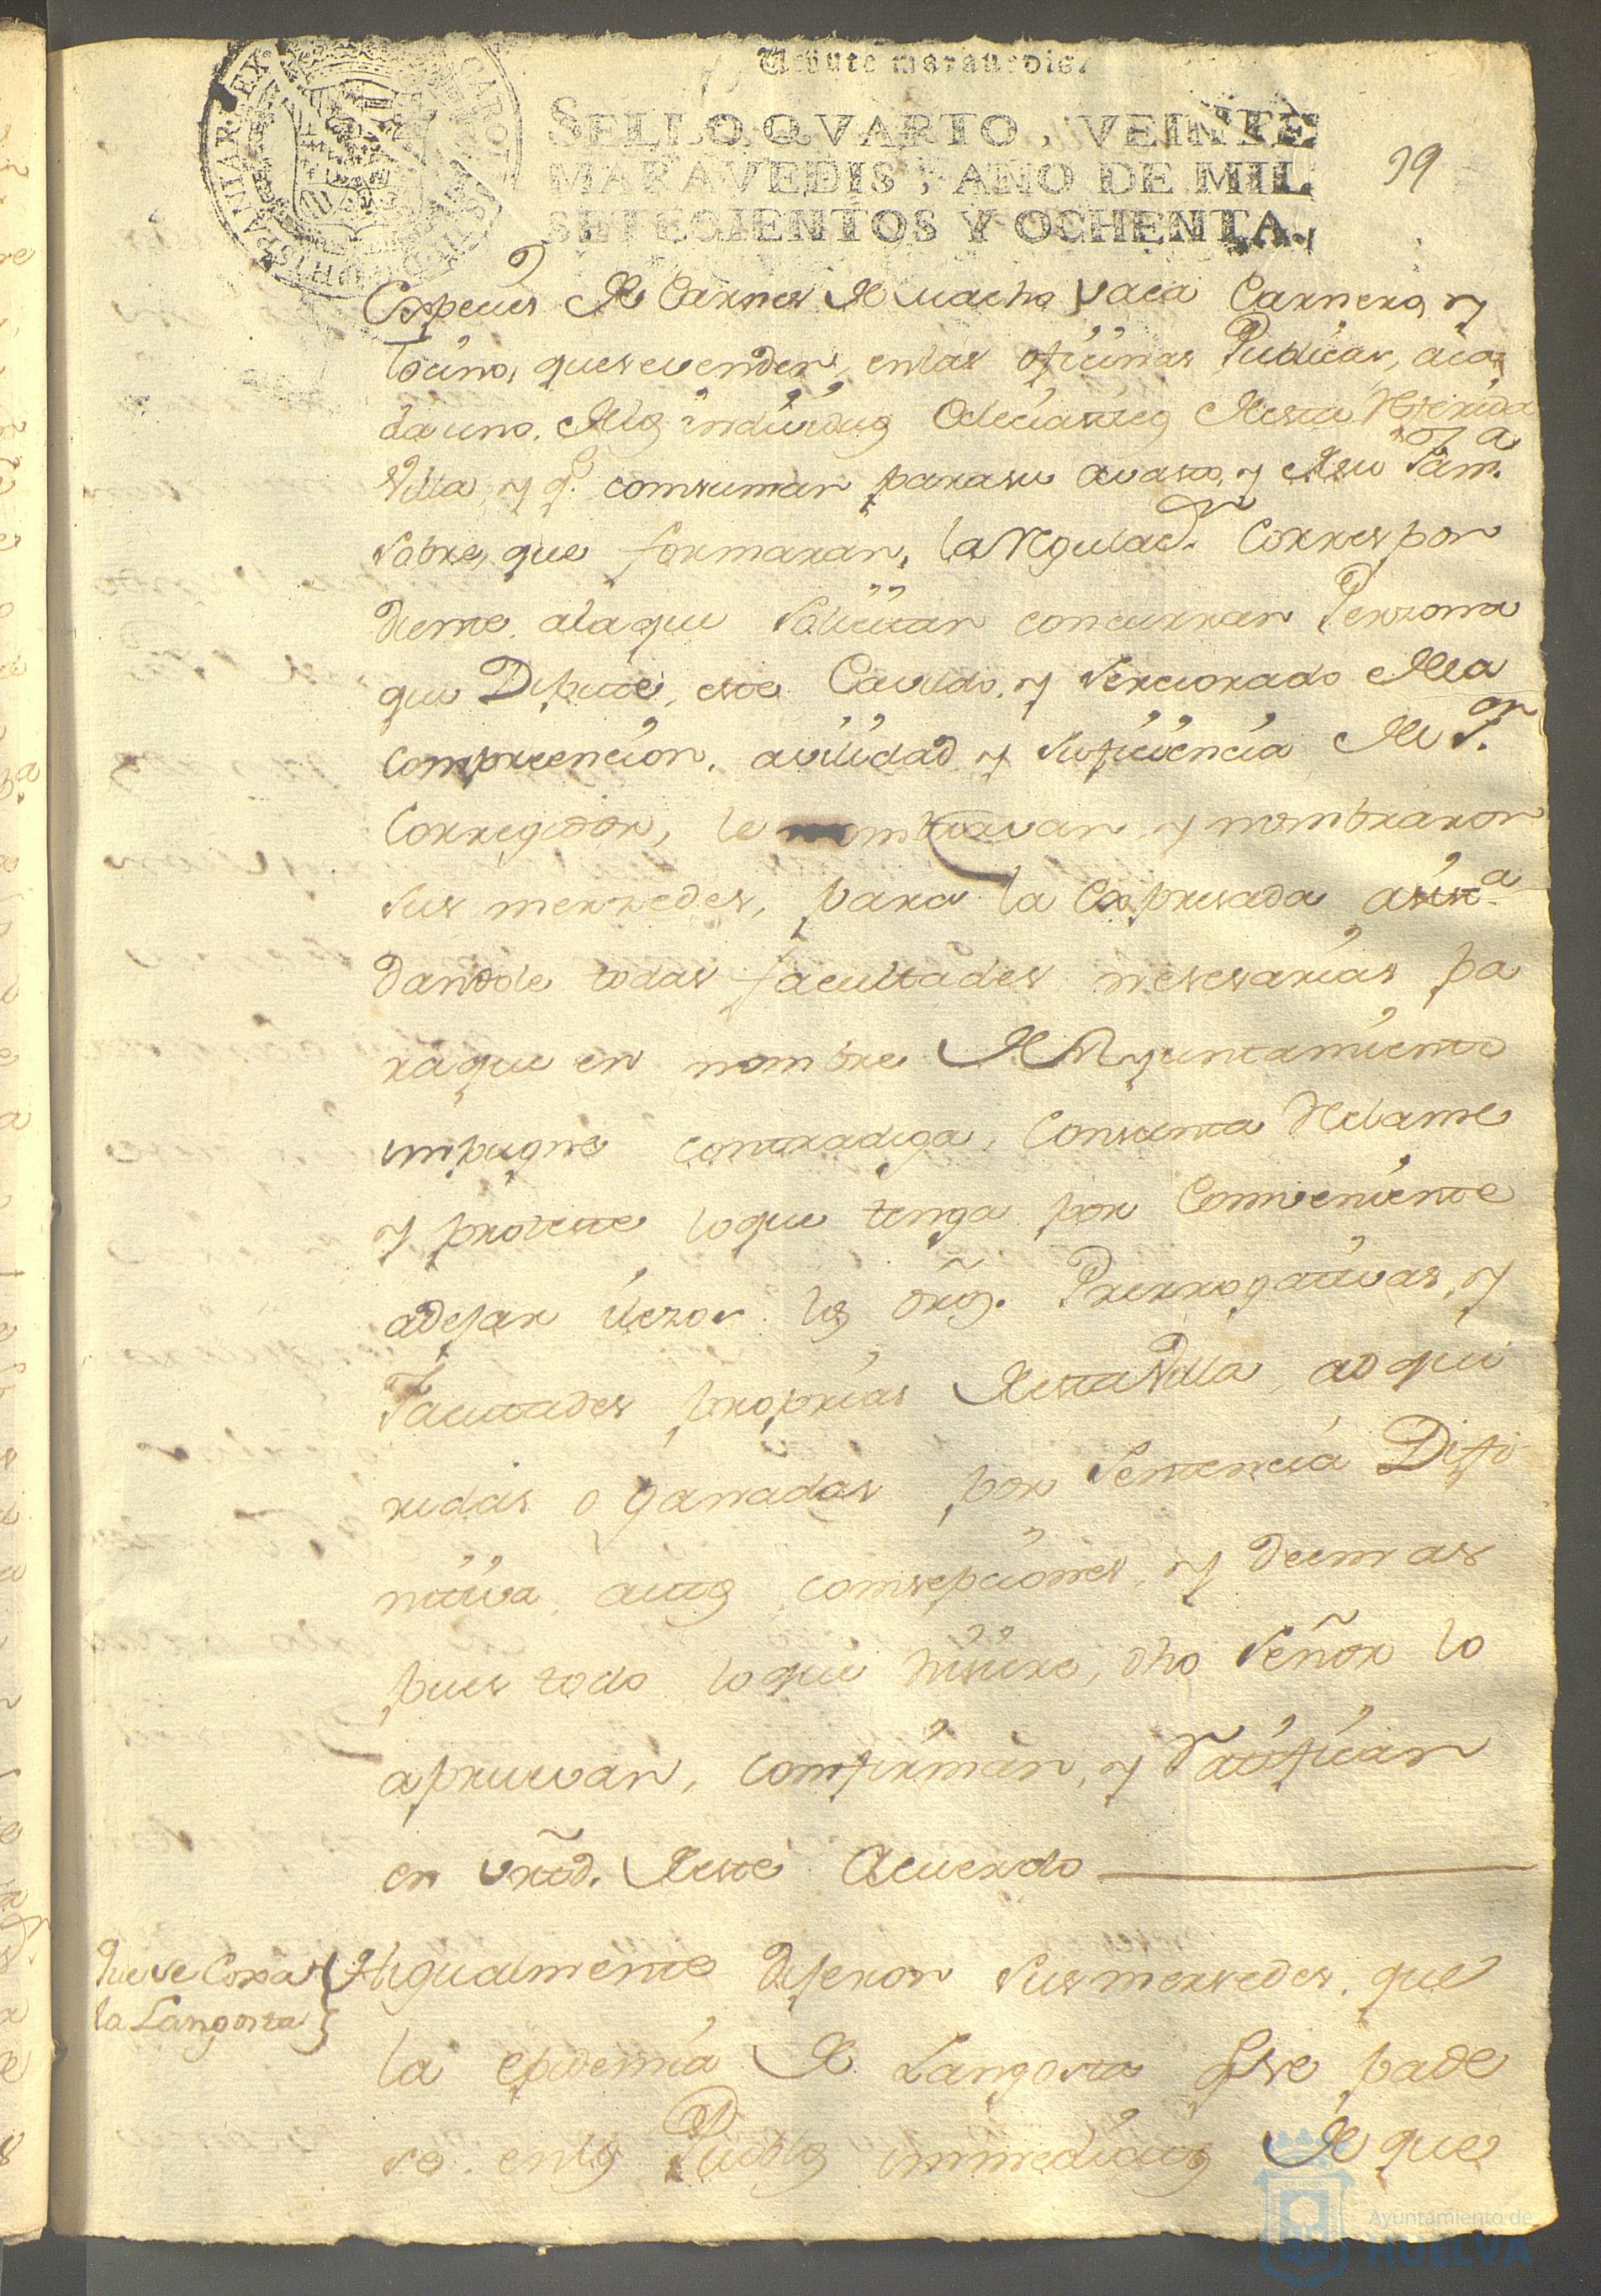 Veinte maravedis.
SELLO QVARTO, VEINTE
MARAVEDIS, AÑO DE MIL
SETECIENTOS Y OCHENTA.
39
HISPANIAR. REX
CAROL
Especies de Carnes de macho vaca Carnero, y
tocino, quesevenden, enlas oficinas Publicas, aca
dauno. delos individuos eclesiasticos desta referida
Villa, y q.e comsuman parasu avasto, y desu fam.a
sobre, que formaran, la regulac.on correspon
diente. alaque solicitan concurran Perzona
que Dipute, este Cavildo, y serciorado dela
compreencion, avilidad y suficiencia del S.or
Corregidor, le nombravan y nombraron
sus merzedes, para la expresada asist.a
dandole todas facultades nesesarias pa
raque en nombre del Ayuntamiento
impugne contradiga, Consienta reclame
y proteste loque tenga por Conveniente
adejar ilezos los dros. Prerrogativas, y
facultades proprias destaVilla, adqui
ridas o ganadas por sentencia Difi
nitiva, autos, comsepciones, y demas
pues todo loque hisiere, dho señor lo
apruevan, comfirman, y ratifican
en vrtd. deste Acuerdo
la Langosta
Higualmente dijeron susmersedes. que
la epidemia de Langosta qe se pade
se. enlos Pueblos inmediatos de que
Ayuntamiento de
HUELVA